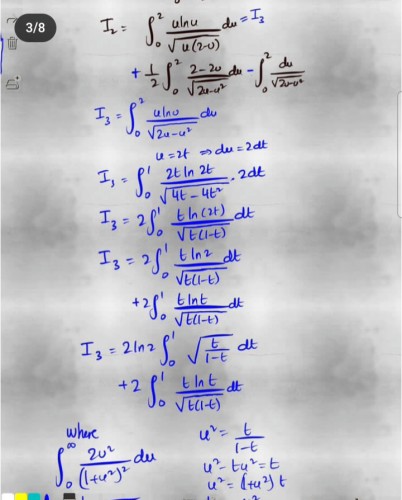 3/8
I₂ = ∫₀² u ln u / √(u(2-u)) du = I₃
+ 1/2 ∫₀² (2-2u) / √(2u-u²) du - ∫₀² du / √(2u-u²)
I₃ = ∫₀² u ln u / √(2u-u²) du
u = 2t ⇒ du = 2dt
I₃ = ∫₀¹ 2t ln 2t / √(4t-4t²) · 2dt
I₃ = 2∫₀¹ t ln(2t) / √(t(1-t)) dt
I₃ = 2∫₀¹ t ln 2 / √(t(1-t)) dt
+2∫₀¹ t ln t / √(t(1-t)) dt
I₃ = 2 ln 2 ∫₀¹ √(t / (1-t)) dt
+2 ∫₀¹ t ln t / √(t(1-t)) dt
where
∫₀^∞ 2u² / (1+u²)² du
u² = t / (1-t)
u² - tu² = t
u² = (1+u²) t